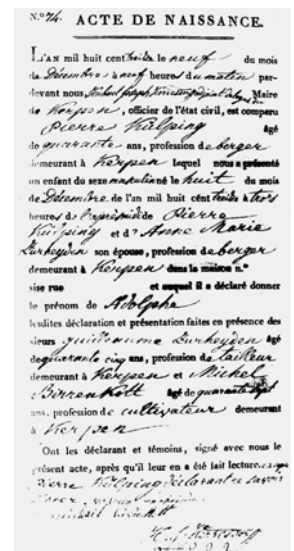 N.º 74. ACTE DE NAISSANCE.
L'AN mil huit cent treize le neuf du mois
de Décembre à neuf heures du matin par-
devant nous Maire
de Kerpen, officier de l'état civil, est comparu
Pierre Külping âgé
de quarante ans, profession de berger
demeurant à Kerpen lequel nous a présenté
un enfant du sexe masculin né le huit du mois
de Décembre de l'an mil huit cent treize à trois
heures d. l'après midi de Pierre
Külping et d' Anne Marie
Zurheyden son épouse, profession de berger
demeurant à Kerpen dans la maison n.º
sise rue et auquel il a déclaré donner
le prénom de Adolphe
lesdites déclaration et présentation faites en présence des
sieurs guillaume Zurheyden âgé
de quarante cinq ans, profession de tailleur
demeurant à Kerpen et Michel
Berrenkott âgé de quarante sept
ans, profession de cultivateur demeurant
à Kerpen
Ont les déclarant et témoins, signé avec nous le
présent acte, après qu'il leur en a été fait lecture.
Pierre Külping déclarant ne savoir